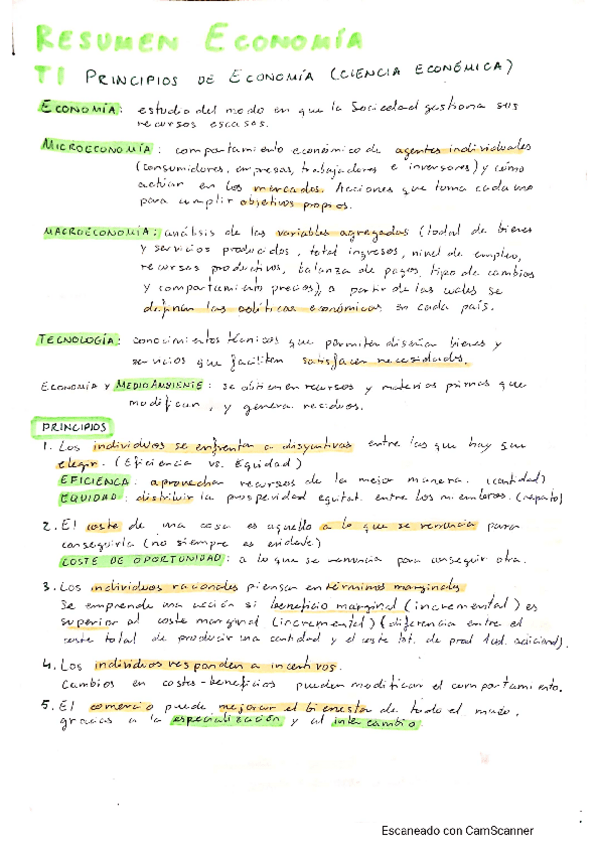 RESUMEN ECONOMÍA
T1 PRINCIPIOS DE ECONOMÍA (CIENCIA ECONÓMICA)
ECONOMÍA: estudio del modo en que la Sociedad gestiona sus
recursos escasos.
MICROECONOMÍA: comportamiento económico de agentes individuales
(consumidores, empresas, trabajadores e inversores) y cómo
actúan en los mercados. Acciones que toma cada uno
para cumplir objetivos propios.
MACROECONOMÍA: análisis de las variables agregadas (total de bienes
y servicios producidos, total ingresos, nivel de empleo,
recursos productivos, balanza de pagos, tipo de cambios
y comportamiento precios), a partir de las cuales se
definan las políticas económicas en cada país.
TECNOLOGÍA: conocimientos técnicos que permiten diseñar bienes y
servicios que faciliten satisfacer necesidades.
ECONOMÍA Y MEDIOAMBIENTE: se obtienen recursos y materias primas que
modifican, y genera residuos.
PRINCIPIOS
1. Los individuos se enfrentan a disyuntivas entre las que hay que
elegir. (Eficiencia vs. Equidad)
EFICIENCA: aprovechar recursos de la mejor manera. (cantidad)
EQUIDAD: distribuir la prosperidad equitat. entre los miembros. (reparto)
2. El coste de una cosa es aquello a lo que se renuncia para
conseguirla (no siempre es evidente)
COSTE DE OPORTUNIDAD: a lo que se renuncia para conseguir otra.
3. Los individuos racionales piensan en términos marginales
Se emprende una acción si beneficio marginal (incremental) es
superior al coste marginal (incremental) (diferencia entre el
coste total de producir una cantidad y el coste tot. de prod 1ud. adicional).
4. Los individuos responden a incentivos.
Cambios en costes-beneficios pueden modificar el comportamiento.
5. El comercio puede mejorar el bienestar de todo el mundo,
gracias a la especialización y al intercambio.
Escaneado con CamScanner